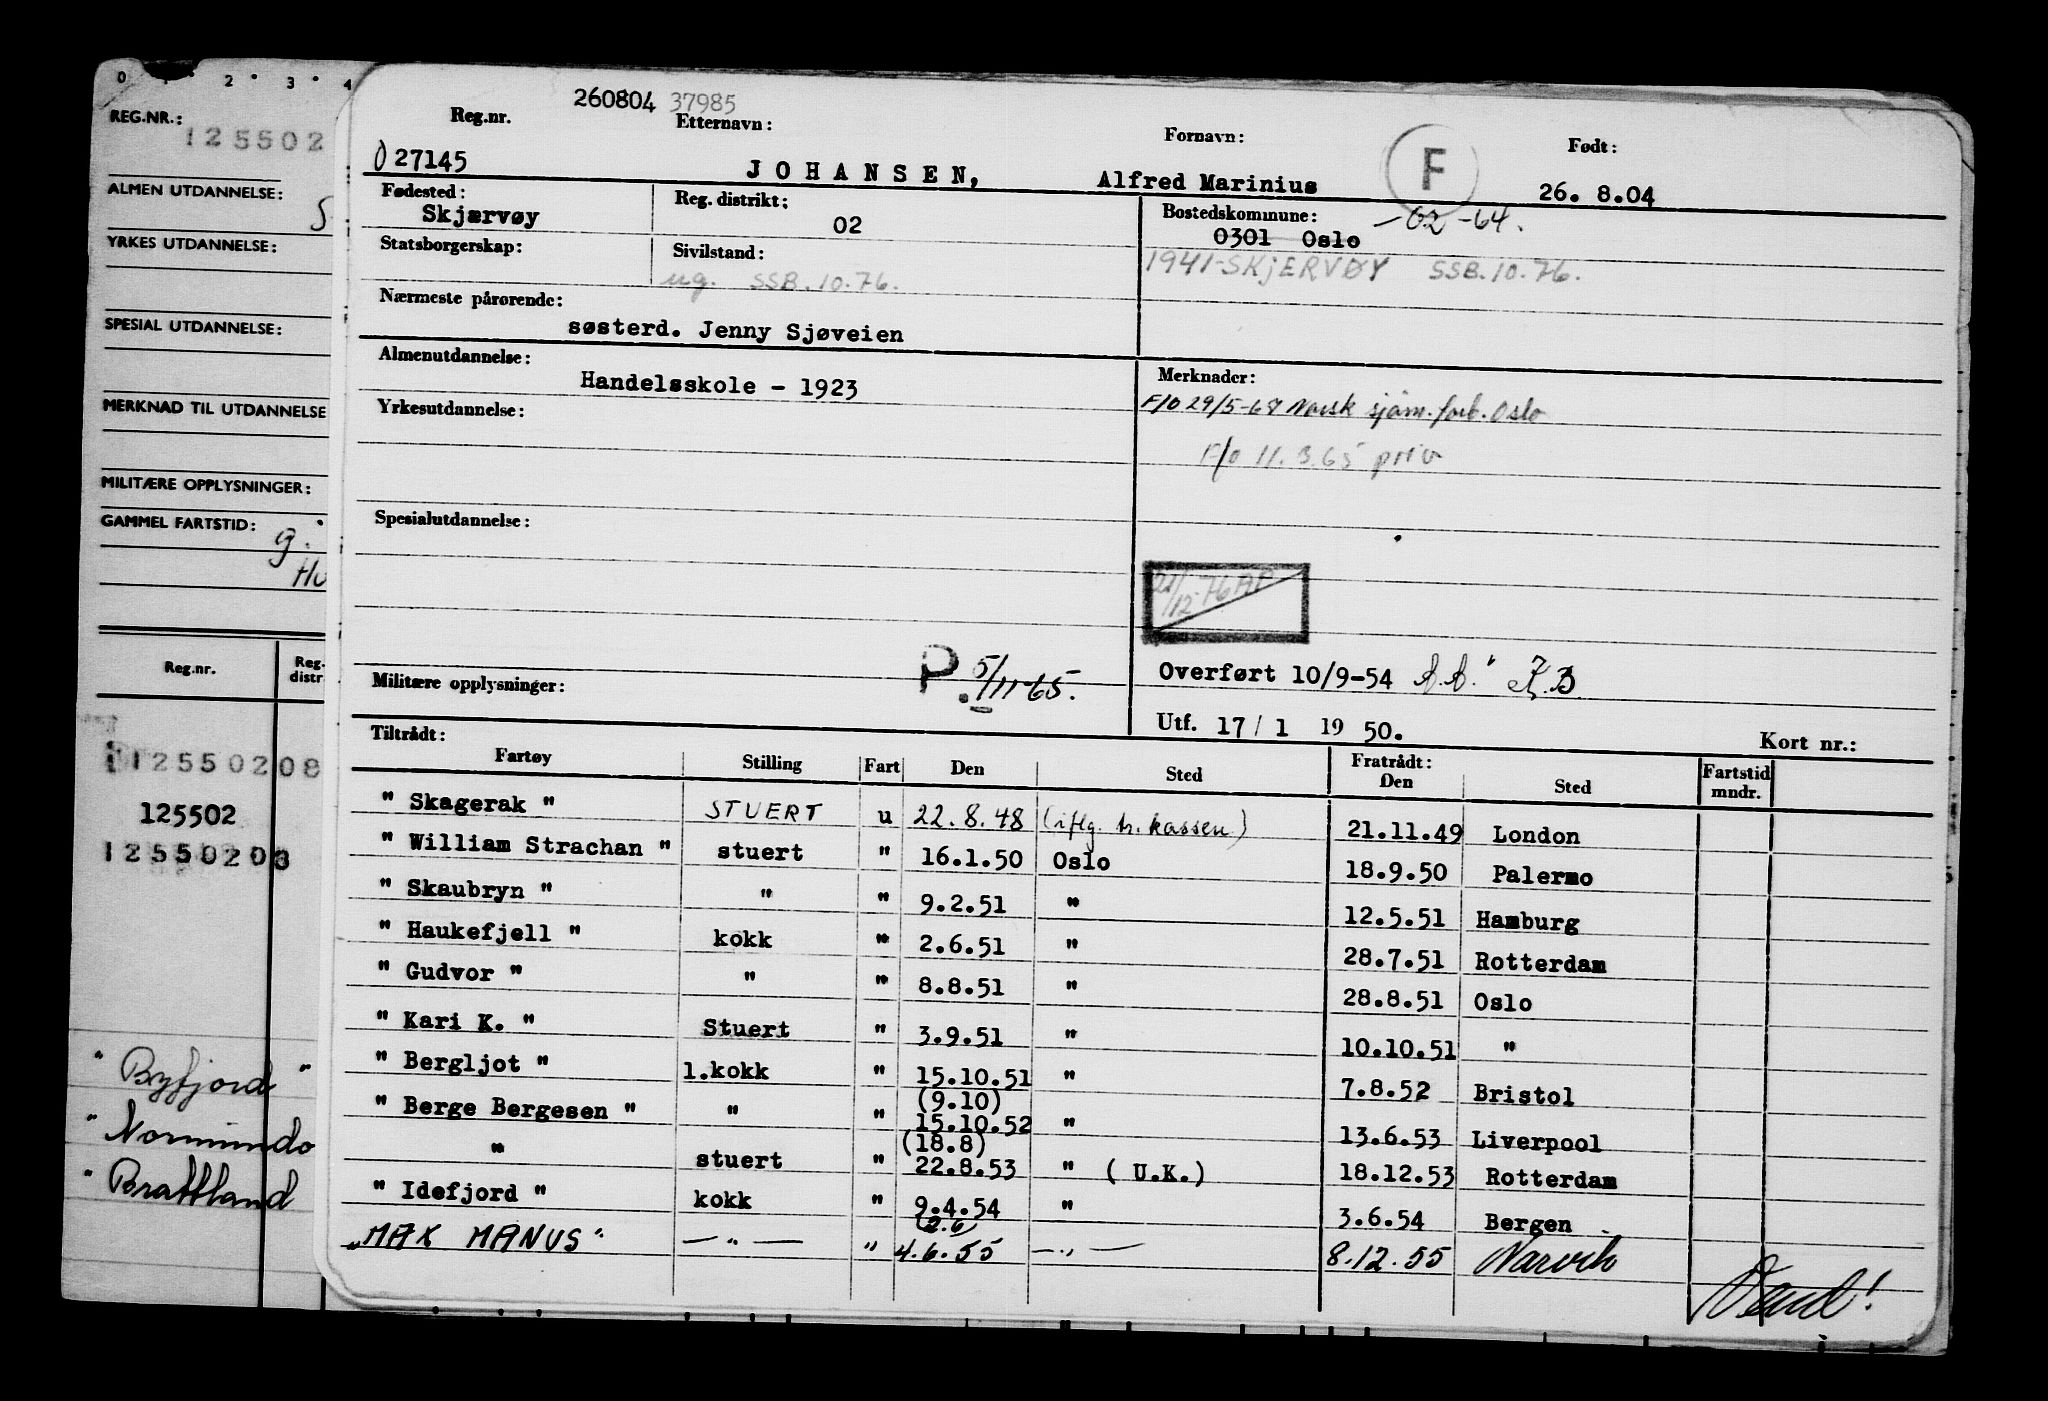 0 1 2 3 4
REG.NR.:
125502
ALMEN UTDANNELSE:
S
YRKES UTDANNELSE:
SPESIAL UTDANNELSE:
MERKNAD TIL UTDANNELSE
MILITÆRE OPPLYSNINGER:
GAMMEL FARTSTID:
g.
Reg.nr. Reg. distr.
12550208
125502
12550203
" Byfjord "
" Normindo
" Brattland
260804 37985
Reg.nr. Etternavn: Fornavn: F Født:
027145 JOHANSEN, Alfred Marinius 26. 8.04
Fødested: Reg. distrikt: Bostedskommune:
Skjærvøy 02 0301 Oslo -02-64.
Statsborgerskap: Sivilstand:
ug. SSB.10.76. 1941-SKJERVØY SSB.10.76.
Nærmeste pårørende:
søsterd. Jenny Sjøveien
Almenutdannelse: Merknader:
Handelsskole - 1923
F/O 29/5-67 Norsk sjøm.forb. Oslo
Yrkesutdannelse:
F/o 11.3.65 priv
Spesialutdannelse:
21/12-76 AF
P. 5/11-65.
Overført 10/9-54 A.A. K.B.
Militære opplysninger:
Utf. 17/ 1 19 50. Kort nr.:
Tiltrådt: Fratrådt:
Fartøy Stilling Fart Den Sted Den Sted Fartstid mndr.
" Skagerak " STUERT u 22.8.48 (iflg. tr. kassen) 21.11.49 London
" William Strachan " stuert " 16.1.50 Oslo 18.9.50 Palermo
" Skaubryn " " " 9.2.51 " 12.5.51 Hamburg
" Haukefjell " kokk " 2.6.51 " 28.7.51 Rotterdam
" Gudvor " " " 8.8.51 " 28.8.51 Oslo
" Kari K. " Stuert " 3.9.51 " 10.10.51 "
" Bergljot " 1.kokk " 15.10.51 " 7.8.52 Bristol
(9.10)
" Berge Bergesen " " " 15.10.52 " 13.6.53 Liverpool
(18.8)
" stuert " 22.8.53 " (U.K.) 18.12.53 Rotterdam
" Idefjord " kokk " 9.4.54 " 3.6.54 Bergen
(2.6)
"MAX MANUS" — " — " 4.6.55 — " — 8.12.55 Narvik
Vend!